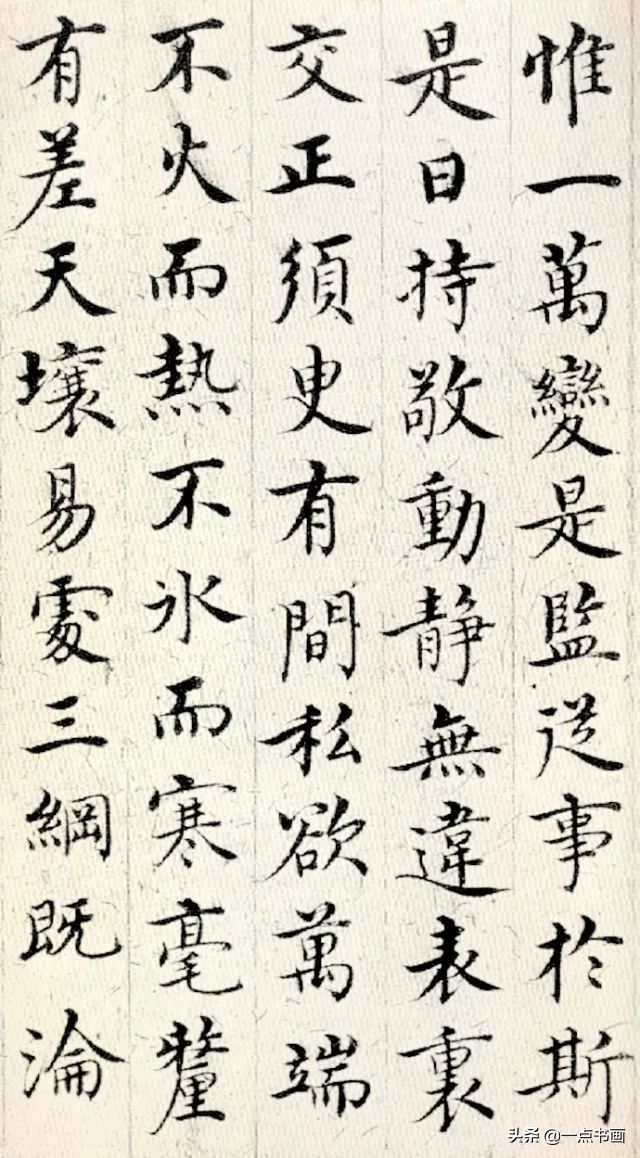 惟一萬變是監從事於斯
是曰持敬動靜無違表裏
交正須臾有間私欲萬端
不火而熱不氷而寒毫釐
有差天壤易處三綱既淪
头条 @一点书画